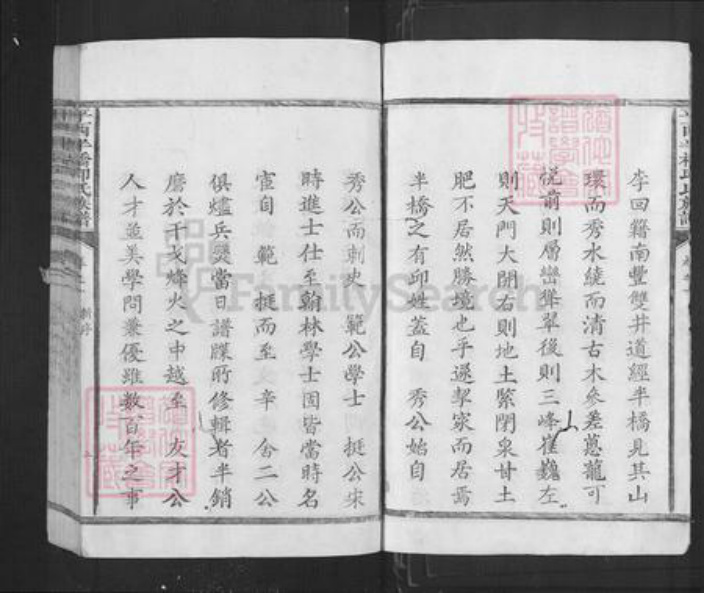 李回籍南豐雙井道經半橋見其山
環而秀水繞而清古木參差蔥蘢可
悅前則層巒聳翠後則三峰崔巍左
則天門大開右則地土緊閉泉甘土
肥不居然勝境也乎遂挈家而居焉
半橋之有邱姓蓋自 秀公始自
秀公而刺史 範公學士 挺公宋
時進士仕至翰林學士固皆當時名
宦自 範 挺而至 辛 舍二公
俱燼兵燹當日譜牒所修輯者半銷
磨於干戈烽火之中越至 友才公
人才並美學問兼優雖數百年之事
半橋邱氏族譜
新序
FamilySearch